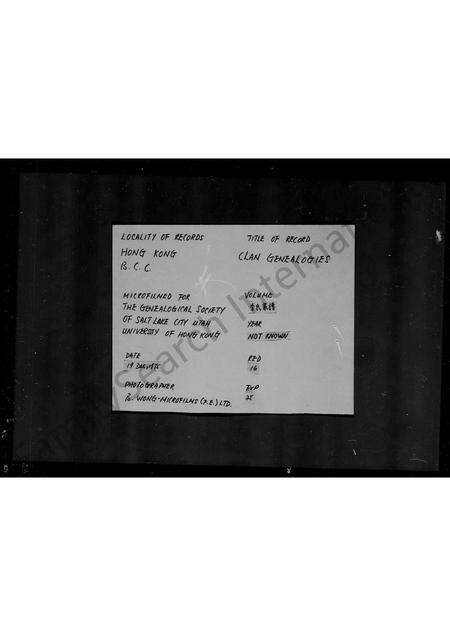 LOCALITY OF RECORDS
HONG KONG
B. C. C.
TITLE OF RECORD
CLAN GENEALOGIES
MICROFILMED FOR
THE GENEALOGICAL SOCIETY
OF SALT LAKE CITY UTAH
UNIVERSITY OF HONG KONG
VOLUME
YEAR
NOT KNOWN
DATE
RED
16
PHOTOGRAPHER
WONG-MICROFILMS (F.E.) LTD.
EXP
25